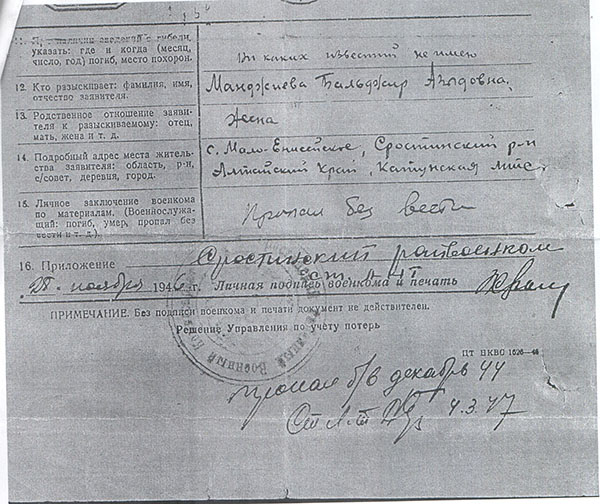 наличии сведений о гибели,
указать: где и когда (месяц,
число, год) погиб, место похорон.
Ни каких известий не имею
12. Кто разыскивает: фамилия, имя,
отчество заявителя.
Манджиева Бальджир
13. Родственное отношение заяви-
теля к разыскиваемому: отец,
мать, жена и т. д.
Жена
14. Подробный адрес места житель-
ства заявителя: область, р-н,
с/совет, деревня, город.
с. Мало-Енисейское, Сростинский р-н
Алтайский Край, Катунская
15. Личное заключение военкома
по материалам. (Военнослужа-
щий: погиб, умер, пропал без
вести и т. д.).
Пропал без вести
16. Приложение
Сростинский райвоенком
ст. л-т
"28" ноября 1946 г. Личная подпись военкома и печать
ПРИМЕЧАНИЕ. Без подписи военкома и печати документ не действителен.
Решение Управления по учёту потерь
ЦТ НКВС 1626—46
пропал б/в декабрь 44
Ст Л-т 4.3.47